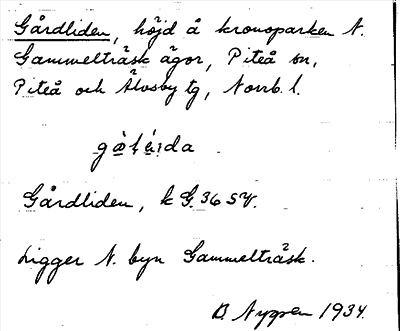 Gårdliden, höjd å kronoparken N.
Gammelträsk ägor, Piteå sn,
Piteå och Älvsby tg, Norrb. l.
Gårdliden, k G. 36 SV.
Ligger N. byn Gammelträsk.
B. Nygren 1934.